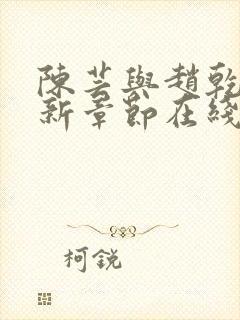 陳芸與趙乾
新章節在綫
柯銳